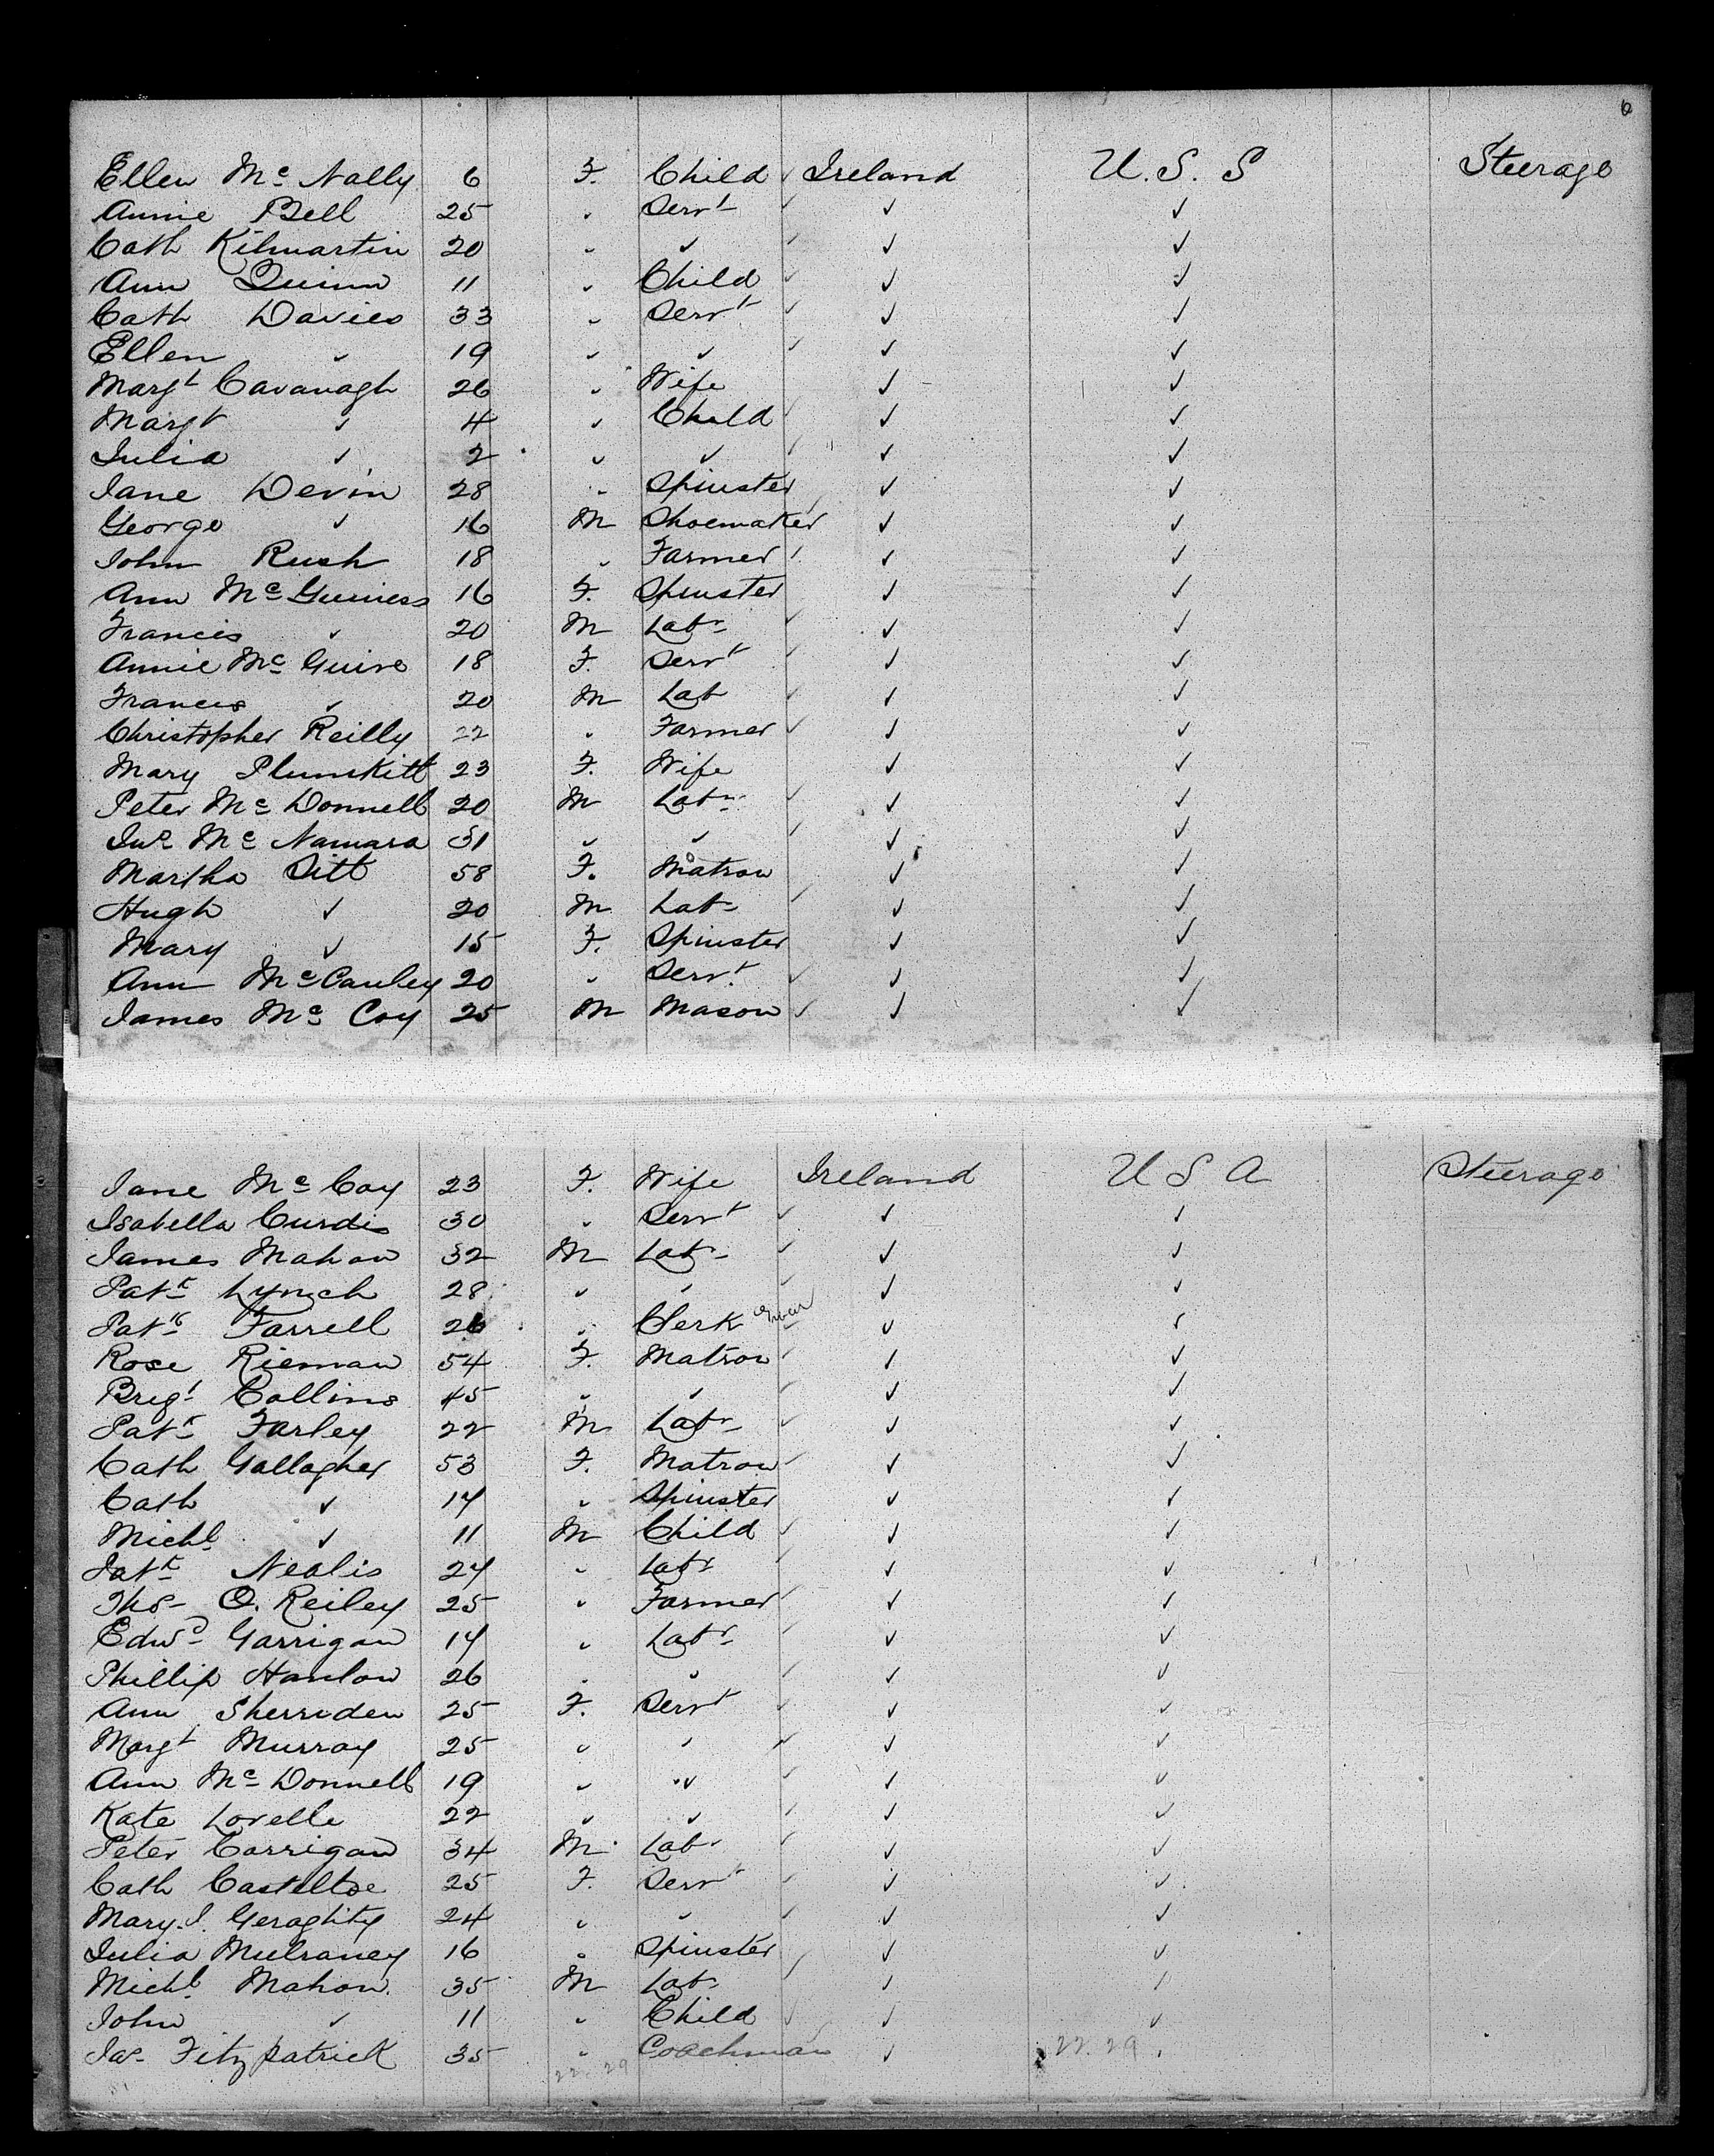 6
Ellen Mc Nally 6 F. Child Ireland U.S.S Steerage
Annie Bell 25 " Servt ✓ ✓
Cath Kilmartin 20 " ✓ ✓ ✓
Ann Quinn 11 " Child ✓ ✓
Cath Davies 33 " Servt ✓ ✓
Ellen ✓ 19 " ✓ ✓ ✓
Margt Cavanagh 26 " Wife ✓ ✓
Margt ✓ 4 " Child ✓ ✓
Julia ✓ 2 " ✓ ✓ ✓
Jane Devin 28 " Spinster ✓ ✓
George ✓ 16 M Shoemaker ✓ ✓
John Rush 18 " Farmer ✓ ✓
Ann Mc Guiness 16 F. Spinster ✓ ✓
Francis ✓ 20 M Labr ✓ ✓
Annie Mc Guire 18 F. Servt ✓ ✓
Francis ✓ 20 M Lab ✓ ✓
Christopher Reilly 22 " Farmer ✓ ✓
Mary Plunkitt 23 F. Wife ✓ ✓
Peter Mc Donnell 20 M Labr ✓ ✓
Jno Mc Namara 31 " ✓ ✓ ✓
Martha Sitt 58 F. Matron ✓ ✓
Hugh ✓ 20 M Labr ✓ ✓
Mary ✓ 15 F. Spinster ✓ ✓
Ann McCauley 20 " Servt ✓ ✓
James Mc Coy 25 M Mason ✓ ✓
Jane Mc Coy 23 F. Wife Ireland U S A Steerage
Isabella Curdis 30 " Servt ✓ ✓
James Mahon 32 M Labr ✓ ✓
Patk Lynch 28 " ✓ ✓ ✓
Patk Farrell 26 " Clerk ✓ ✓
Rose Rieman 54 F. Matron ✓ ✓
Bregt Collins 45 " ✓ ✓ ✓
Patk Farley 22 M Labr ✓ ✓
Cath Gallagher 53 F. Matron ✓ ✓
Cath ✓ 14 " Spinster ✓ ✓
Michl ✓ 11 M Child ✓ ✓
Patk Nealis 24 " Labr ✓ ✓
Thos O. Reiley 25 " Farmer ✓ ✓
Edwd Garrigan 14 " Labr ✓ ✓
Phillip Hanlon 26 " ✓ ✓ ✓
Ann Sherriden 25 F. Servt ✓ ✓
Margt Murray 25 " ✓ ✓ ✓
Ann Mc Donnell 19 " ✓ ✓ ✓
Kate Lovelle 22 " ✓ ✓ ✓
Peter Corrigan 34 M Labr ✓ ✓
Cath Casteltoe 25 F. Servt ✓ ✓
Mary J. Geraghty 24 " ✓ ✓ ✓
Julia Mulraney 16 " Spinster ✓ ✓
Michl Mahon 35 M Labr ✓ ✓
John ✓ 11 " Child ✓ ✓
Jas Fitzpatrick 35 " Coachman ✓ 22.29 ✓
22.29